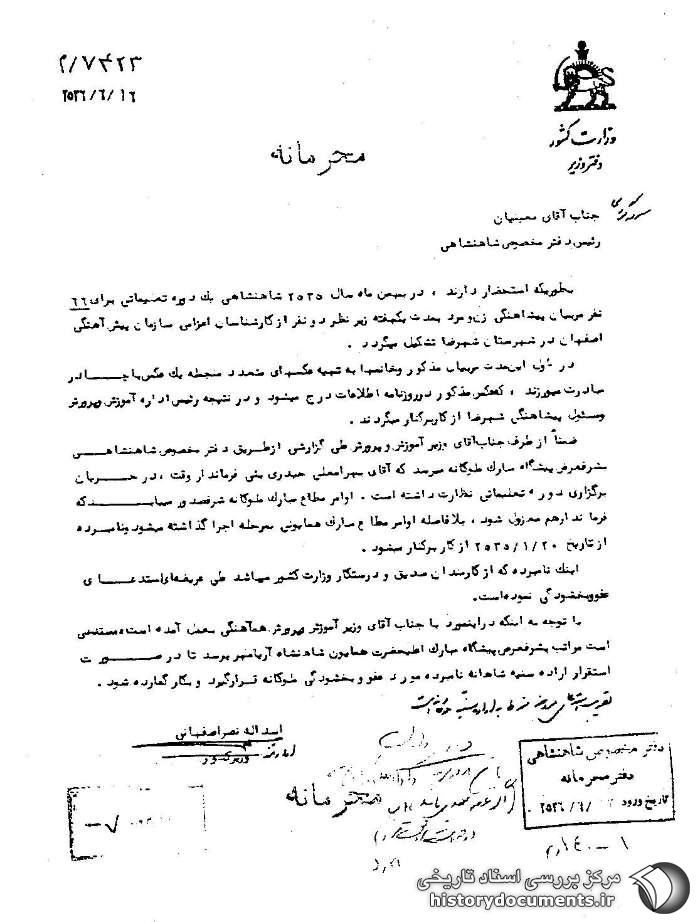 ۷۴۲۳/م
۲۵۳۶/۶/۱۶
وزارت کشور
دفتر وزیر
محرمانه
جناب آقای معینیان
رئیس دفتر مخصوص شاهنشاهی
بطوریکه استحضار دارند ، در بهمن ماه سال ۲۵۳۵ شاهنشاهی یک دوره تعلیماتی برای ۶۶
نفر مربیان پیشاهنگی زن و مرد بمدت یکهفته زیر نظر دو نفر از کارشناسان اعزامی سازمان پیش آهنگی
اصفهان در شهرستان شهرضا تشکیل میگردد .
در طول این مدت مربیان مذکور و خانمها به تهیه عکسهای متعدد منجمله یک عکس با چادر
مبادرت میورزند ، که عکس مذکور در روزنامه اطلاعات درج میشود و در نتیجه رئیس اداره آموزش و پرورش
و مسئول پیشاهنگی شهرضا از کار برکنار میگردند .
ضمناً از طرف جناب آقای وزیر آموزش و پرورش طی گزارشی از طریق دفتر مخصوص شاهنشاهی
بشرفعرض پیشگاه مبارک ملوکانه میرسد که آقای سهرابعلی حیدری بنی فرماندار وقت ، در جریان
برگزاری دوره تعلیماتی نظارت داشته است . اوامر مطاع مبارک ملوکانه شرفصدور مییابد که
فرماندار هم معزول شود ، بلافاصله اوامر مطاع مبارک همایونی بمرحله اجرا گذاشته میشود و نامبرده
از تاریخ ۲۵۳۵/۱/۲۰ از کار برکنار میشود .
اینک نامبرده که از کارمندان صدیق و درستکار وزارت کشور میباشد طی عریضه‌ای استدعای
عفو و بخشودگی نموده است.
با توجه به اینکه در اینمورد با جناب آقای وزیر آموزش و پرورش هم‌آهنگی بعمل آمده است مستدعی
است مراتب بشرفعرض پیشگاه مبارک اعلیحضرت همایون شاهنشاه آریامهر برسد تا در صورت
استقرار اراده سنیه شاهانه نامبرده مورد عفو و بخشودگی ملوکانه قرار گیرد و بکار گمارده شود .
اسداله نصر اصفهانی
وزیر کشور
محرمانه
دفتر مخصوص شاهنشاهی
دفتر محرمانه
تاریخ ورود ۲۵۳۶/۶/
مرکز بررسی اسناد تاریخی
historydocuments.ir